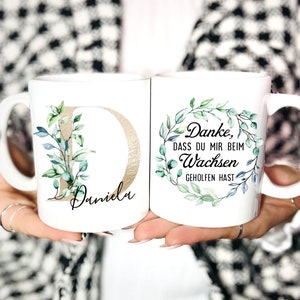 D
Daniela
Danke,
DASS DU MIR BEIM
Wachsen
GEHOLFEN HAST